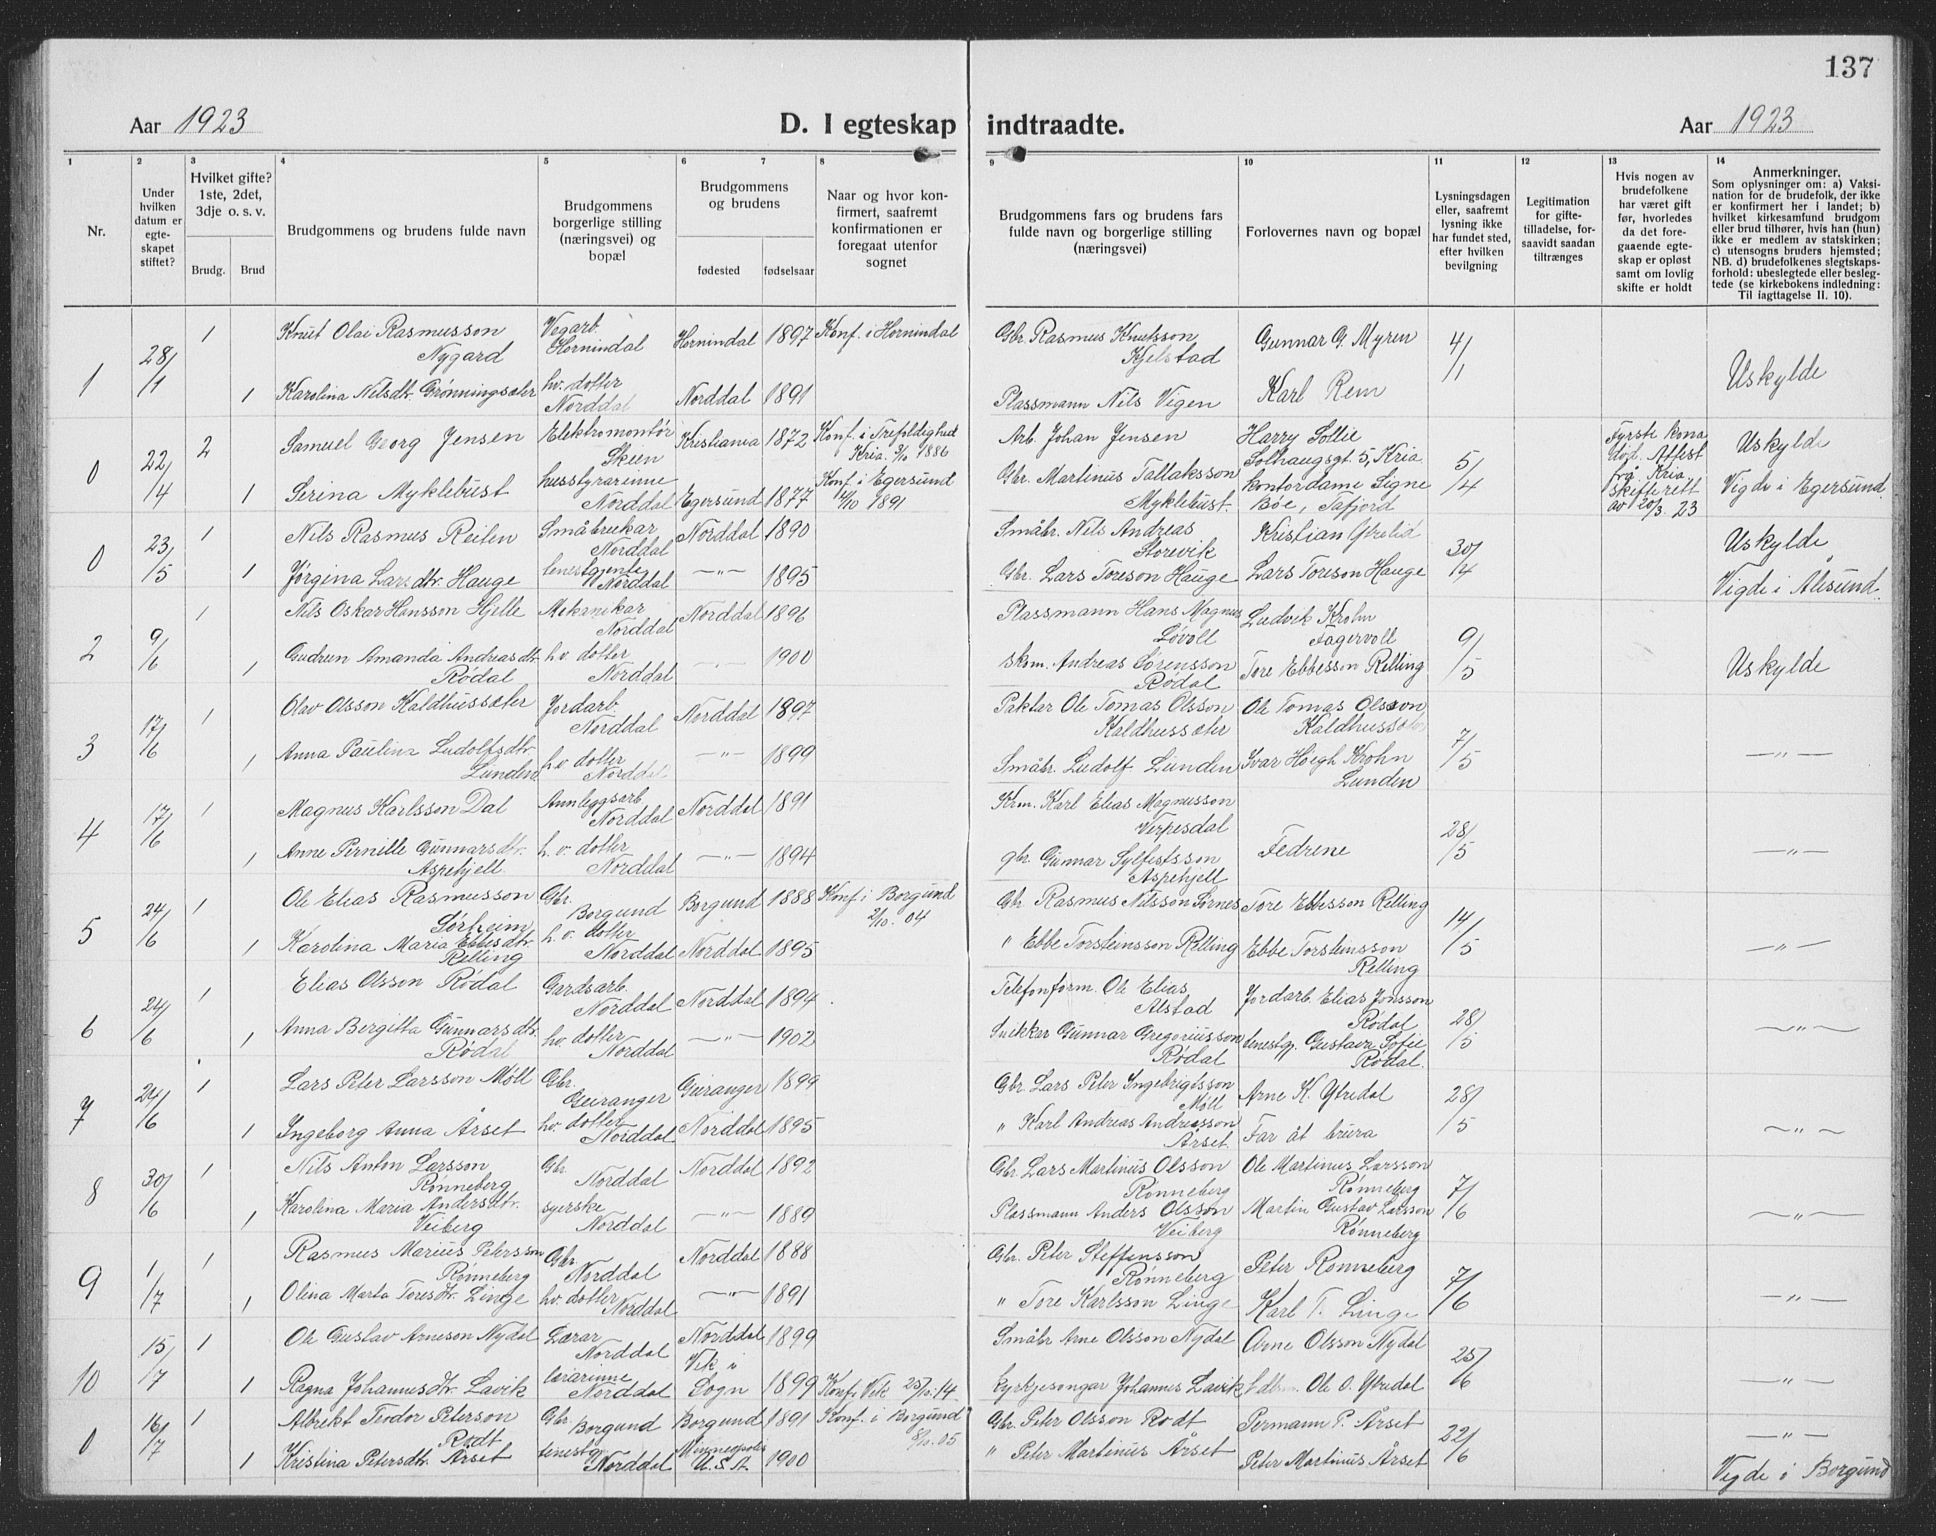 137
Aar 1923
D. I egteskap indtraadte.
Aar 1923
1 2 3 4 5 6 7 8 9 10 11 12 13 14
Nr.
Under hvilken datum er egteskapet stiftet?
Hvilket gifte? 1ste, 2det, 3dje o. s. v.
Brudg.
Brud
Brudgommens og brudens fulde navn
Brudgommens borgerlige stilling (næringsvei) og bopæl
Brudgommens og brudens
fødested
fødselsaar
Naar og hvor konfirmert, saafremt konfirmationen er foregaat utenfor sognet
Brudgommens fars og brudens fars fulde navn og borgerlige stilling (næringsvei)
Forlovernes navn og bopæl
Lysningsdagen eller, saafremt lysning ikke har fundet sted, efter hvilken bevilgning
Legitimation for giftetilladelse, forsaavidt saadan tiltrænges
Hvis nogen av brudefolkene har været gift før, hvorledes da det foregaaende egteskap er opløst samt om lovlig skifte er holdt
Anmerkninger.
Som oplysninger om: a) Vaksination for de brudefolk, der ikke er konfirmert her i landet; b) hvilket kirkesamfund brudgom eller brud tilhører, hvis han (hun) ikke er medlem av statskirken; c) utensogns bruders hjemsted; NB. d) brudefolkenes slegtskapsforhold: ubeslegtede eller beslegtede (se kirkebokens indledning: Til iagttagelse II. 10).
1 28/1 1 Knut Olai Rasmusson Nygard Vegarb. Hornindal Hornindal 1897 Konf. i Hornindal Gbr. Rasmus Knutsson Kjelstad Gunnar G. Myren 4/1 Uskylde
1 Karolina Nilsdtr. Grønningsæter hv. dotter Norddal Norddal 1891 Plassmann Nils Vigen Karl Rem
0 22/4 2 Samuel Georg Jensen Elektromontør Skien Kristiania 1872 Konf. i Trefoldighed Kria. 3/10 1886 Arb. Johan Jensen Harry Sollie Solhaugsgt. 5, Kria 5/4 Fyrste kona død. Attest frå Kria skifterett av 20/3 23 Uskylde
1 Serina Myklebust husstyrarinne Norddal Egersund 1877 Konf. i Egersund 14/10 1891 Gbr. Martinus Tallaksson Myklebust. kontordame Signe Bøe, Tafjord Vigde i Egersund.
0 23/5 1 Nils Rasmus Reiten Småbrukar Norddal Norddal 1890 Småbr. Nils Andreas Storevik Kristian Ytrelid 30/4 Uskylde
1 Jørgina Larsdtr. Hauge tenestgjente Norddal —"— 1895 Gbr. Lars Toreson Hauge Lars Toreson Hauge Vigde i Ålesund.
2 9/6 1 Nils Oskar Hansson Hjelle Mekanikar Norddal Norddal 1896 Plassmann Hans Magnus Løvoll Ludvik Krohn Fagervoll 9/5 Uskylde
1 Gudrun Amanda Andreasdtr. Rødal hv. dotter Norddal —"— 1900 skom. Andreas Sørensson Rødal Tore Ebbesson Relling
3 17/6 1 Olav Olsson Kaldhussæter Jordarb. Norddal Norddal 1897 Paktar Ole Tomas Olsson Kaldhussæter Ole Tomas Olsson Kaldhussæter 7/5 —"—
1 Anna Paulina Ludolfsdtr. Lunden hv. dotter Norddal —"— 1899 Småbr. Ludolf Lunden Ivar Høegh Krohn Lunden
4 17/6 1 Magnus Karlsson Dal Annleggsarb. Norddal Norddal 1891 Krm. Karl Elias Magnusson Verpesdal 28/5 —"—
1 Anne Pernille Gunnarsdtr. Aspehjell h. v. dotter Norddal —"— 1894 gbr. Gunnar Sylfestsson Aspehjell Fedrene
5 24/6 1 Ole Elias Rasmusson Sørheim Gbr. Borgund Borgund 1888 Konf. i Borgund 2/10. 04 Gbr. Rasmus Nilsson Sørnes Tore Ebbesson Relling 14/5 —"—
1 Karolina Maria Ebbesdtr. Relling h. v. dotter Norddal Norddal 1895 " Ebbe Torsteinsson Relling Ebbe Torsteinsson Relling
6 24/6 1 Elias Olsson Rødal Gardsarb. Norddal Norddal 1894 Telefonform. Ole Elias Alstad Jordarb. Elias Jonsson Rødal 28/5 —"—
1 Anna Bergitta Gunnarsdtr. Rødal hv. dotter Norddal —"— 1902 Snekkar Gunnar Gregoriusson Rødal tenestgj. Gustava Sofie Rødal.
7 24/6 1 Lars Peter Larsson Möll Gbr. Geiranger Geiranger 1899 Gbr. Lars Peter Ingebrigtsson Möll Arne K. Ytredal 28/5 —"—
1 Ingeborg Anna Årset hv. dotter Norddal Norddal 1895 " Karl Andreas Andreasson Årset. Far åt brura
8 30/6 1 Nils Anton Larsson Rønneberg Gbr. Norddal Norddal 1892 Gbr. Lars Martinus Olsson Rønneberg Ole Martinus Larsson Rønneberg 7/6 —"—
1 Karolina Maria Andersdtr. Veiberg syerske Norddal —"— 1889 Plassmann Anders Olsson Veiberg Martin Gustav Larsson Rønneberg
9 1/7 1 Rasmus Marius Petersson Rønneberg Gbr. Norddal Norddal 1888 Gbr. Peter Steffensson Rønneberg Peter Rønneberg 7/6 —"—
1 Olina Marta Toresdtr. Linge hv. dotter Norddal —"— 1891 " Tore Karlsson Linge Karl T. Linge
10 15/7 1 Ole Gustav Arneson Nydal Lærar Norddal Norddal 1899 Småbr Arne Olsson Nydal Arne Olsson Nydal 25/6 —"—
1 Ragna Johannesdtr. Lavik lærarinne Norddal Vik i Sogn 1899 Konf. i Vik 25/10. 14 kyrkjesongar Johannes Lavik Ole O. Ytredal
0 16/7 1 Albrekt Teodor Peterson Rødt Gbr. Borgund Borgund 1891 Konf. i Borgund 8/10. 05 Gbr. Peter Olsson Rødt Permann P. Årset 22/6 —"—
1 Kristina Petersdtr. Årset tenestgj. Norddal Minneapolis U.S.A. 1900 " Peter Martinus Årset Peter Martinus Årset Vigde i Borgund